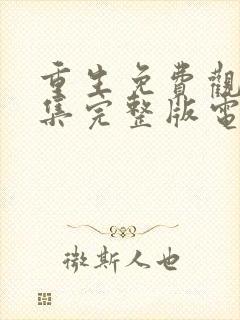 重生免費觀
集完整版電
微斯人也